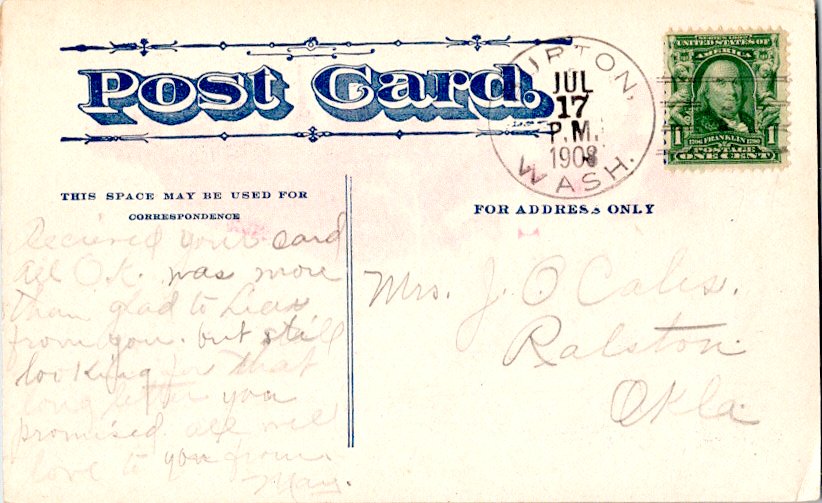 Post Card.
URTON,
JUL
17
P.M.
1908
WASH.
SERIES 1902
UNITED STATES OF
AMERICA
1 1
1706 FRANKLIN 1790
POSTAGE
ONE CENT
THIS SPACE MAY BE USED FOR
CORRESPONDENCE
FOR ADDRESS ONLY
Recieved your card
all O.K. was more
than glad to hear
from you. but still
looking for that
long letter you
promised. all well
love to you from
May.
Mrs. J. O. Cales.
Ralston.
Okla.